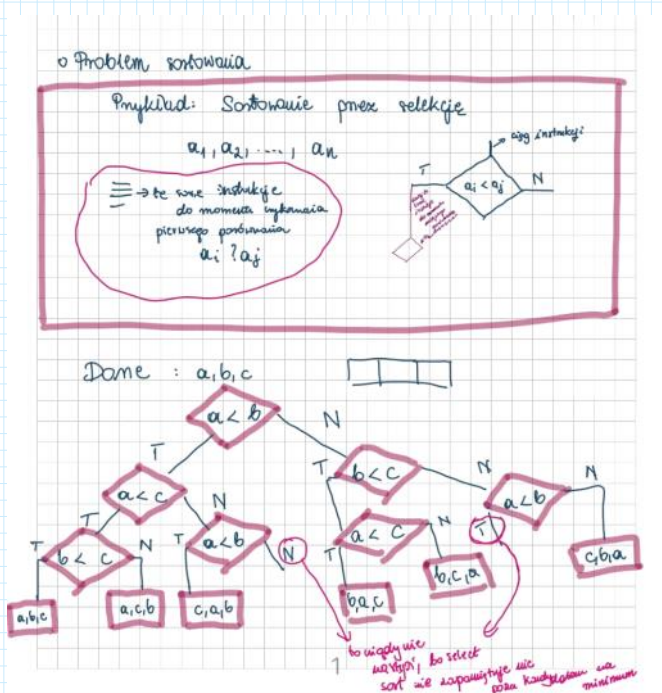 o Problem sortowania
Przykład: Sortowanie przez selekcję
a1, a2, ...., an
→ te same instrukcje
do momentu wykonania
pierwszego porównania
ai ? aj
ciąg instrukcji
T
ai < aj
N
Dane : a, b, c
a < b
T
N
a < c
b < c
T
N
T
N
b < c
a < b
a < c
a < b
T
N
T
N
T
N
T
N
a, b, c
a, c, b
c, a, b
b, a, c
b, c, a
c, b, a
to nigdy nie
nastąpi, bo select
sort nie zapamiętuje nic
poza kandydatem na
minimum
1